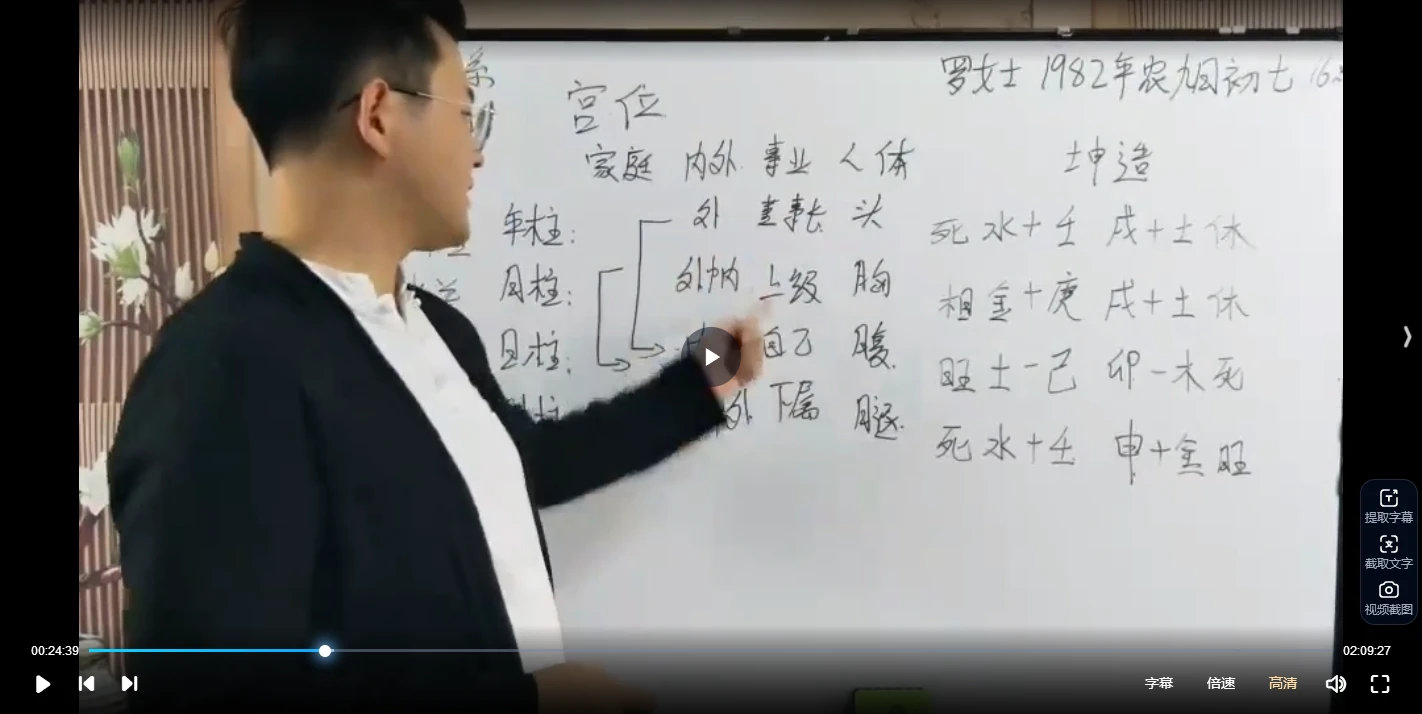 系
宫位
罗女士 1982年农九月初七 16:
家庭 内外 事业 人体
坤造
年柱: 外 董事长 头
死 水+壬 戌+土休
月柱: 外中内 上级 胸
相 金+庚 戌+土休
日柱: 自己 腹
旺 土-己 卯-木死
外 下属 腿
死 水+壬 申+金旺
提取字幕
截取文字
视频截图
00:24:39
02:09:27
字幕 倍速 高清